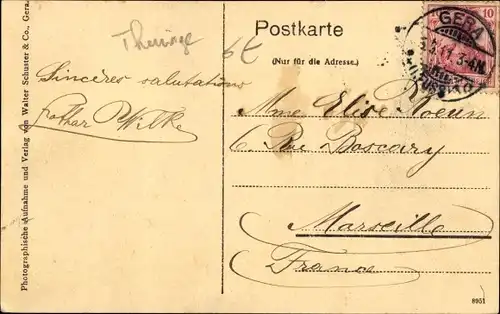 Postkarte
(Nur für die Adresse.)
10
GERA
3-4N.
6€
Sincères salutations
Lothar Wilke
Mme Elise
6. Rue Boscary
Marseille
France
Photographische Aufnahme und Verlag von Walter Schuster & Co., Gera.
8951